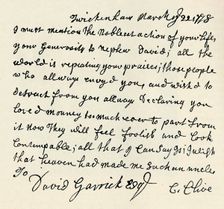 Twickenham March ye 22 1778
I must mention the Noblest action of your life,
your generosity to nephew David; all the
world is repeating your praises; those people
who allway envyed you, and wish'd to
detract from you allway declaring you
love'd money too much ever to part from
it now They will feel foolish and look
Contempable; all that I Can Say Is I wish
that heaven had made me Such an uncle
To David Garrick Esqr C. Clive